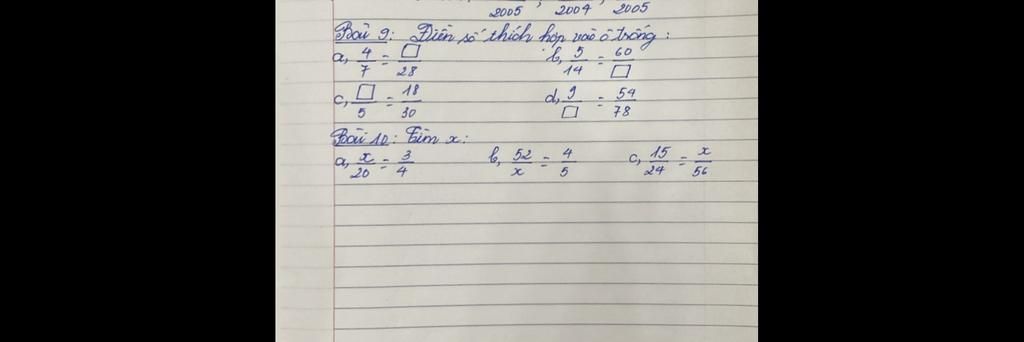 2005 2004 2005
Bài 9: Điền số thích hợp vào ô trống:
a, 4/7 = □/28 b, 5/14 = 60/□
c, □/5 = 18/30 d, 9/□ = 54/78
Bài 10: Tìm x:
a, x/20 = 3/4 b, 52/x = 4/5 c, 15/24 = x/56